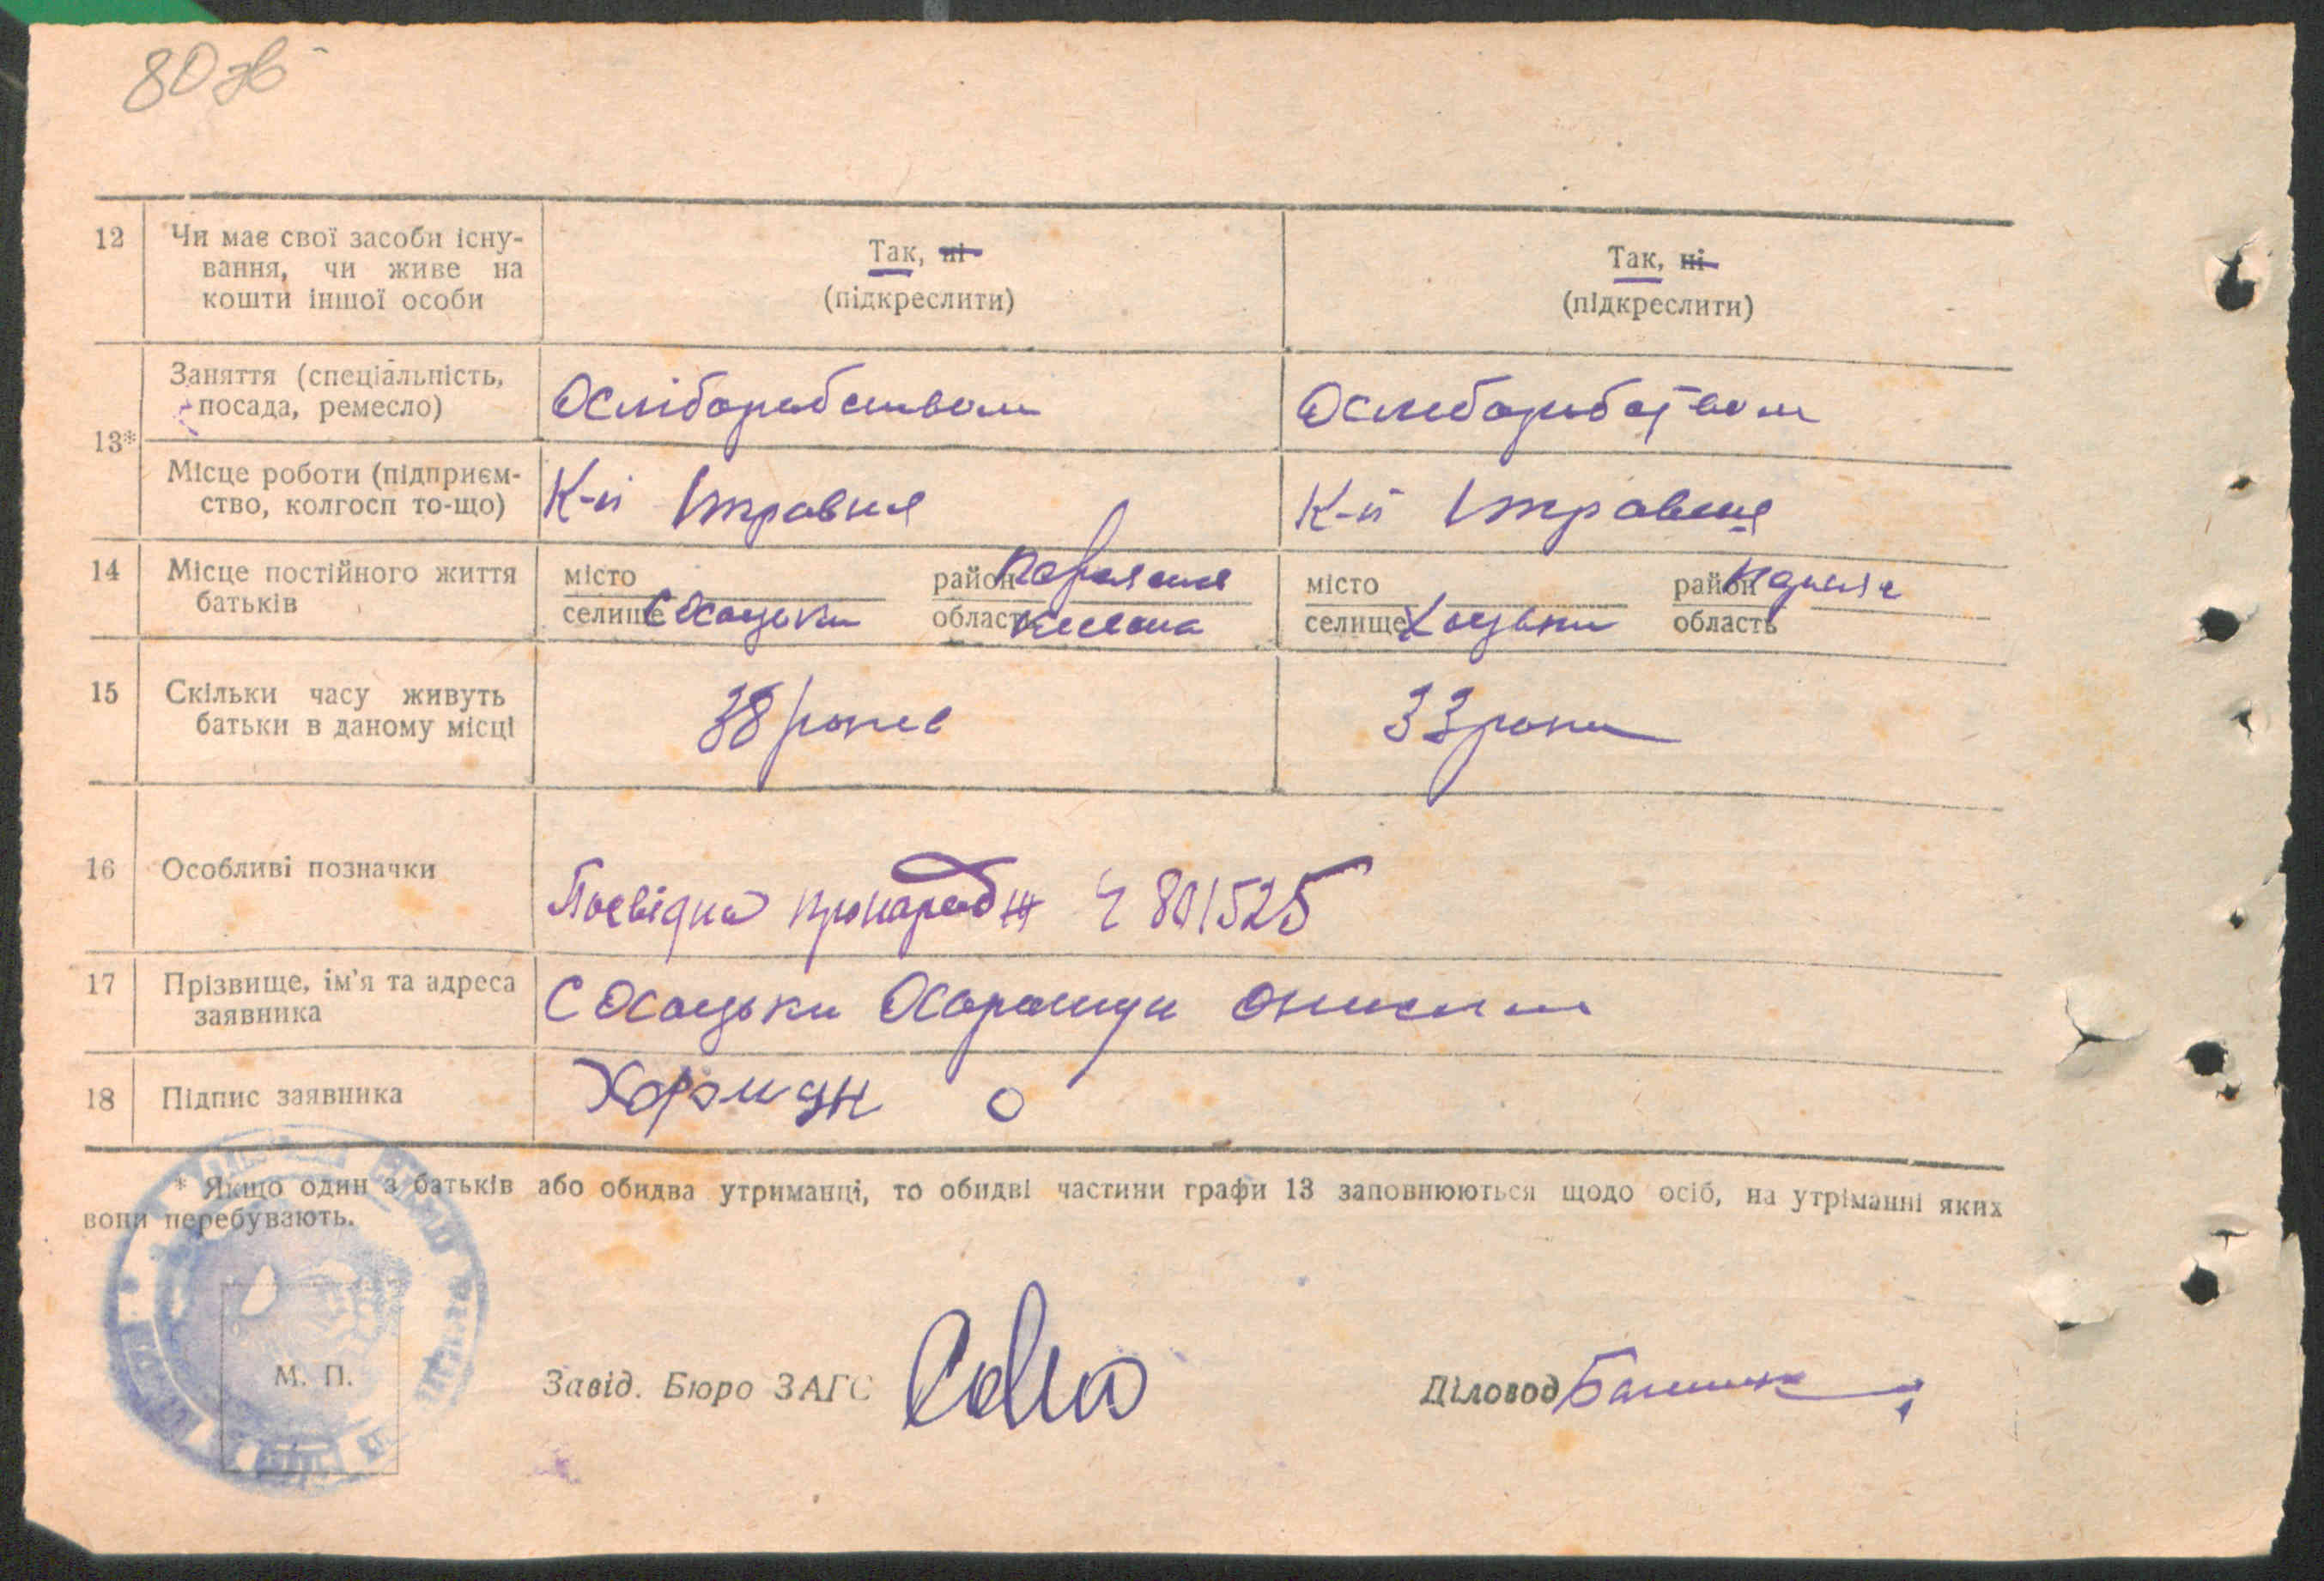 80 зв
12 Чи має свої засоби існу-
вання, чи живе на
кошти іншої особи
Так, ні
(підкреслити)
Так, ні
(підкреслити)
13*
Заняття (спеціальність,
посада, ремесло)
Хліборобством
Хлиборобством
Місце роботи (підприєм-
ство, колгосп то-що)
К-п 1 травня
К-п 1 травня
14 Місце постійного життя
батьків
місто
селище С Хоцьки
район
область Київська
місто
селище Хоцьки
район
область
15 Скільки часу живуть
батьки в даному місці
38 роки
33 роки
16 Особливі позначки
Посвідка про народж Ч 801525
17 Прізвище, ім'я та адреса
заявника
С Хоцьки
18 Підпис заявника
О
* Якщо один з батьків або обидва утриманці, то обидві частини графи 13 заповнюються щодо осіб, на утріманні яких
вони перебувають.
М. П.
Завід. Бюро ЗАГС
Діловод